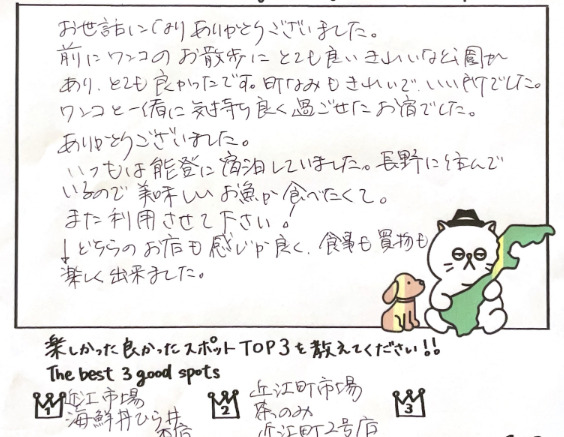 お世話になりありがとうございました。
前にワンコのお散歩にとても良いきれいな公園が
あり、とても良かったです。町なみもきれいで、いい所でした。
ワンコと一緒に気持ち良く過ごせたお宿でした。
ありがとうございました。
いつもは能登に宿泊していました。長野に住んで
いるので美味しいお魚が食べたくて。
また利用させて下さい!
↓どちらのお店も感じが良く、食事も買物も
楽しく出来ました。
楽しかった良かったスポットTOP3を教えてください!!
The best 3 good spots
1 近江市場
海鮮丼ひら井
本店
2 近江町市場
のみ
近江町2号店
3